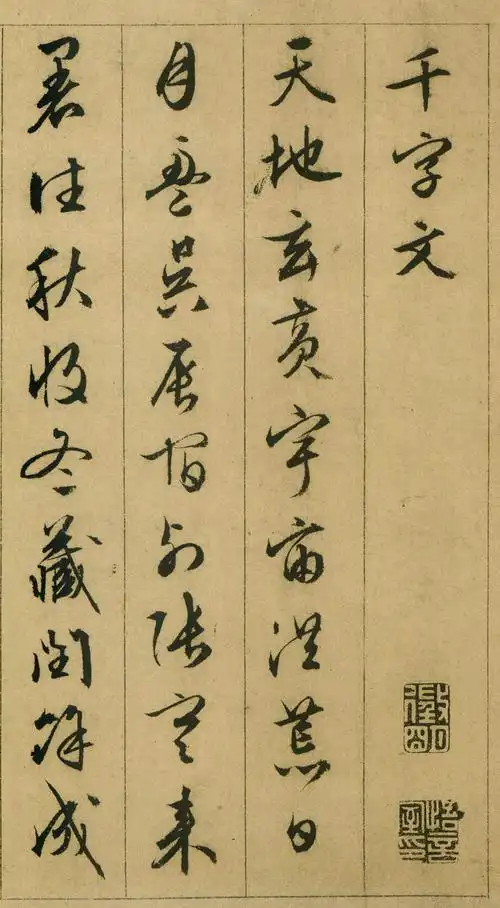 千字文
徵明
悟言室印
天地玄黄宇宙洪荒日
月盈昃辰宿列張寒来
暑往秋收冬藏閏餘成